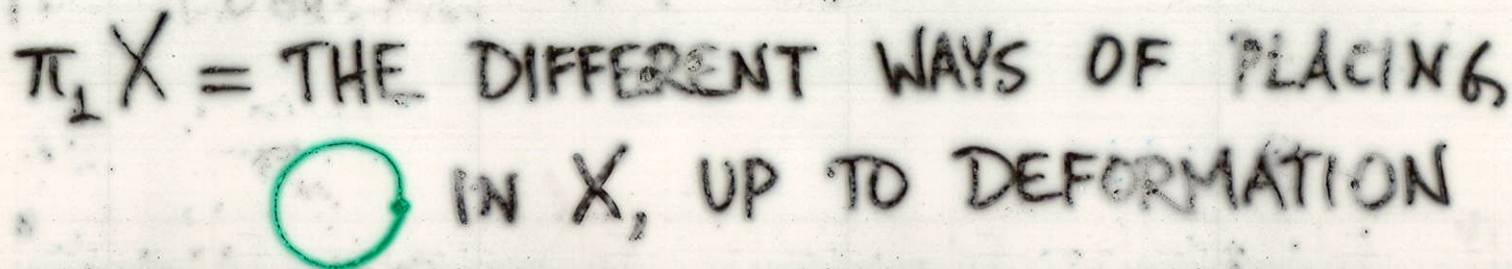 π₁X = THE DIFFERENT WAYS OF PLACING
IN X, UP TO DEFORMATION